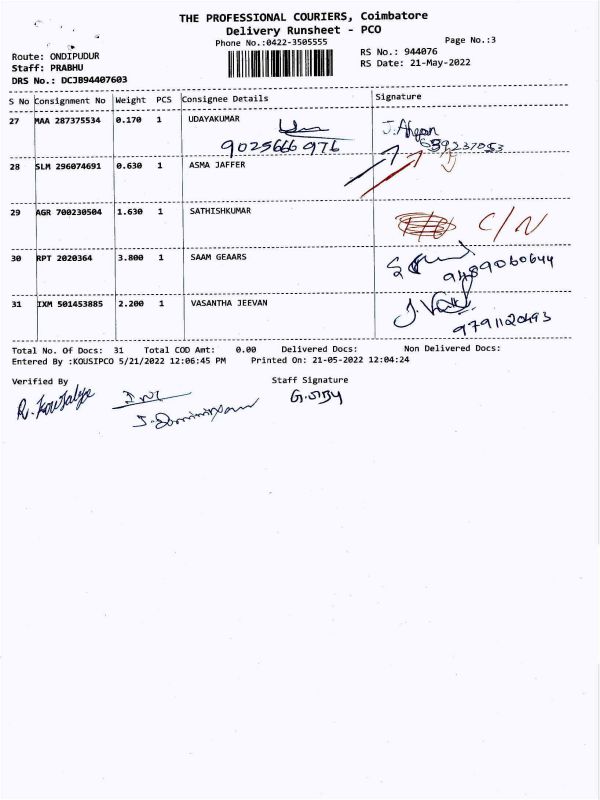 THE PROFESSIONAL COURIERS, Coimbatore
Delivery Runsheet - PCO
Phone No.:0422-3505555
Page No.:3
Route: ONDIPUDUR
RS No.: 944076
Staff: PRABHU
RS Date: 21-May-2022
DRS No.: DCJB94407603
S No Consignment No Weight PCS Consignee Details Signature
27 MAA 287375534 0.170 1 UDAYAKUMAR
9025666976
28 SLM 296074691 0.630 1 ASMA JAFFER
29 AGR 700230504 1.630 1 SATHISHKUMAR C/N
30 RPT 2020364 3.800 1 SAAM GEAARS
9489060644
31 IXM 501453885 2.200 1 VASANTHA JEEVAN
9791120493
Total No. Of Docs: 31 Total COD Amt: 0.00 Delivered Docs: Non Delivered Docs:
Entered By :KOUSIPCO 5/21/2022 12:06:45 PM Printed On: 21-05-2022 12:04:24
Verified By Staff Signature